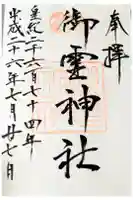 奉拝
御霊神社
皇紀二千六百七十四年
平成二十六年七月廿七日